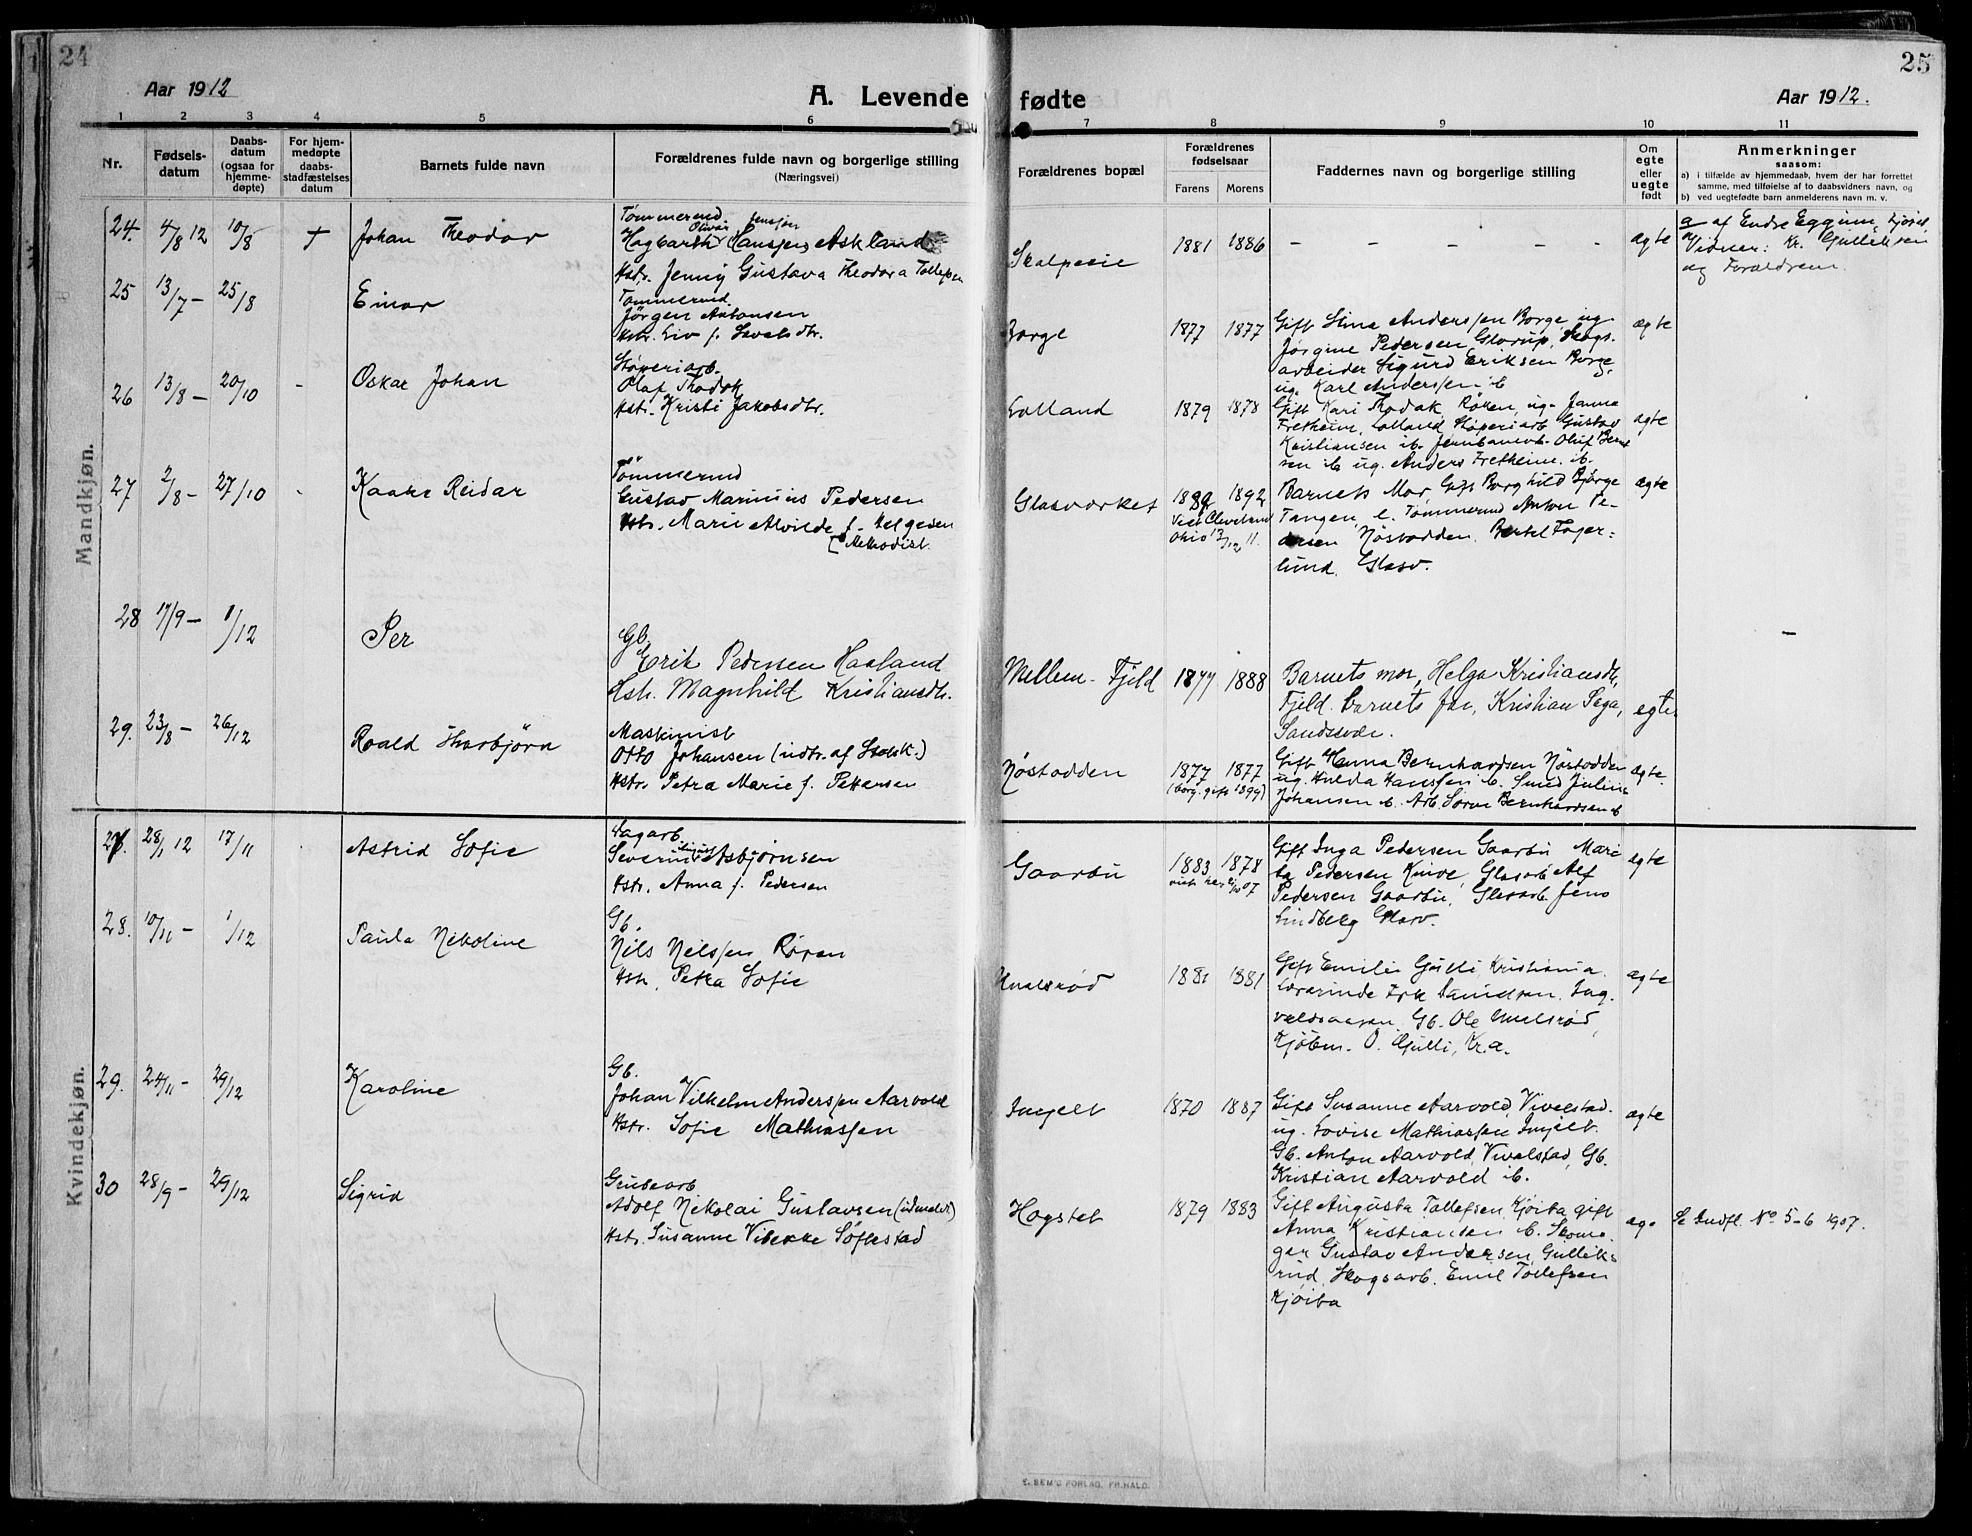 24
25
Aar 1912
A. Levende fødte
Aar 1912.
1 2 3 4 5 6 7 8 9 10 11
Nr.
Fødsels-
datum
Daabs-
datum
(ogsaa for
hjemme-
døpte)
For hjem-
medøpte
daabs-
stadfæstelses
datum
Barnets fulde navn
Forældrenes fulde navn og borgerlige stilling
(Næringsvei)
Forældrenes bopæl
Forældrenes
fødselsaar
Farens Morens
Faddernes navn og borgerlige stilling
Om
egte
eller
uegte
født
Anmerkninger
saasom:
a) i tilfælde av hjemmedaab, hvem der har forrettet
samme, med tilføielse af to daabsvidners navn, og
b) ved uegtefødte barn anmelderens navn m. v.
Mandkjøn.
24. 4/8 12 10/8 + Johan Theodor
Tømmermd.
Olivar Jensen
Hagbarth Hanssen Askland
Hstr. Jenny Gustava Theodora Tollefsen
1881 1886 – – – – – – ægte
a af Endre Eggum,
Vidner: Kr. Gulliksen
og Forældrene.
25 13/7 – 25/8 Einar
Tømmermd.
Jørgen Antonsen
Hstr. Liv f. Sevalsdtr.
Borge 1877 1877
Gift Stina Anderssen Borge, ug.
Jørgine Pedersen Glorup, Skogs-
arbeider Sigurd Eriksen Borge,
ug. Karl Anderssen ib
ægte
26 13/8 – 20/10 - Oskar Johan
Støperiarb.
Olaf Thodok
Hstr. Kristi Jakobsdtr.
Lolland 1879 1878
Gift Kari Thodak, Røken, ug. Janna
Fretheim, Lolland, Støperiarb Gustav
Kristiansen ib. Jernbanearb. Oluf
sen ib ug. Anders Fretheim. ib.
ægte
27 2/8 – 27/10 - Kaare Reidar
Tømmermd
Gustav Marinius Pedersen
Hstr. Marie Alvilde f. Helgesen
[Methodist.
Glasværket 1892
Viet Cleveland
Ohio 12/12 11.
Barnets Mor, Gift Borghild Bjørge
Tangen, l. Tømmermd Anton Pe-
dersen Nøstodden. Bertel Fager-
lund, Glasv.
ægte
28 17/9 – 1/12 Per
Gb.
Erik Pedersen Haaland
Hstr. Magnhild Kristiansdtr.
Mellem-Fjeld 1877 1888
Barnets mor, Helga Kristiansdtr,
Fjeld. Barnets far, Kristian Sega,
Sandsvær.
egte
–
29. 23/8 – 26/12 Roald Thorbjørn
Maskinist
Otto Johansen (udtr. af Statsk.)
Hstr. Petra Marie f. Pettersen
Nøstodden 1877 1877
(borg. gift 1899)
Gift Hanna Bernhardsen Nøstodden
ug. Hulda Hanssen ib. Smed Julius
Johansen ib. Arb. Søren Bernhardsen ib
ægte
Kvindekjøn.
27. 28/1 12 17/11 Astrid Sofie
Dagarb
Severin Asbjørnsen
Hstr. Anna f. Pedersen
Gaarbu 1883 1878
Gift Inga Pedersen Gaarbu Mari
ta Pedersen Knive, Glasarb Alf
Pedersen Gaarbu, Glasarb. Jens
Lindberg Glasv.
ægte
28. 10/11 – 1/12 Paula Nikoline
Gb.
Nils Nilssen Røren
Hstr. Petra Sofie
Knatsrød 1881 1881
Gift Emilie Gulli, Kristiania.
Lærerinde Frk Danielsen, Ing-
valdsaasen. Gb. Ole
Kjøbm. O. Gulli, Kr.a.
ægte
29. 24/11 – 29/12 Karoline
Gb.
Johan Vilhelm Anderssen Aarvold
Hstr. Sofie Mathiassen
Ingelt 1870 1887
Gift Susanne Aarvold, Vivelstad.
ug. Lovise Mathiassen Ingelt.
Gb. Anton Aarvold, Vivelstad, Gb.
Kristian Aarvold ib.
ægte
30 28/9 – 29/12 Sigrid
Grubearb
Adolf Nikolai Gustavsen (udmeldt)
Hstr. Susanne Vibekke Søftestad
Hogstet 1879 1883
Gift Augusta Tollefsen, Kjøita gift
Anna Kristiansen ib. Skoma-
ger Gustav Andersen, Gulliks-
rud, Skogsarb. Emil Tollefsen
Kjøita
æg-
Se Indfl. No 5-6 1907.
E. SEM'S FORLAG, FR.HALD.